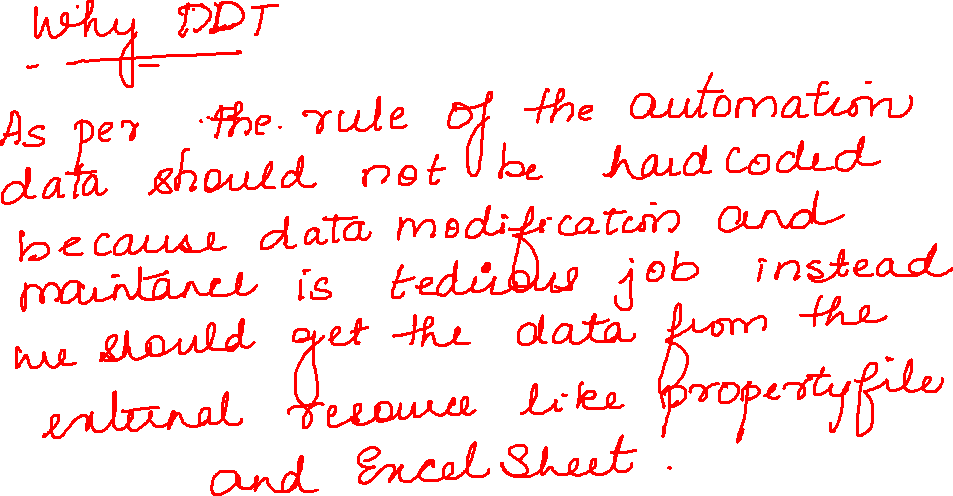 Why DDT
As per the rule of the automation
data should not be hard coded
because data modification and
maintance is tedious job instead
we should get the data from the
external resource like propertyfile
and Excel Sheet.